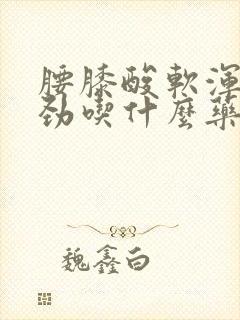 腰膝酸軟渾
勁喫什麼藥
魏鑫白